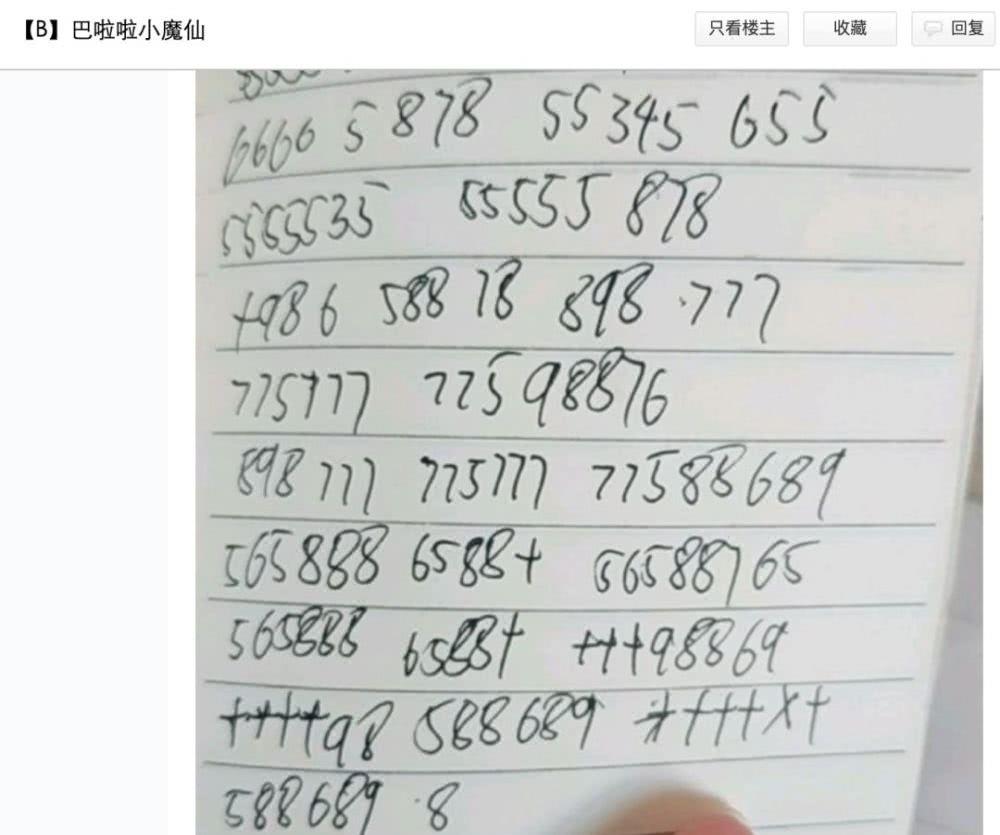 【B】巴啦啦小魔仙
只看楼主 收藏 回复
6660 5 878 55345 655
5555535 55555 878
+986 588 78 898 777
775777 77598876
898 777 775777 77588689
565888 6588+ 56588765
565888 6588+ +++98869
++++98 588689 ++++X+
588689 8